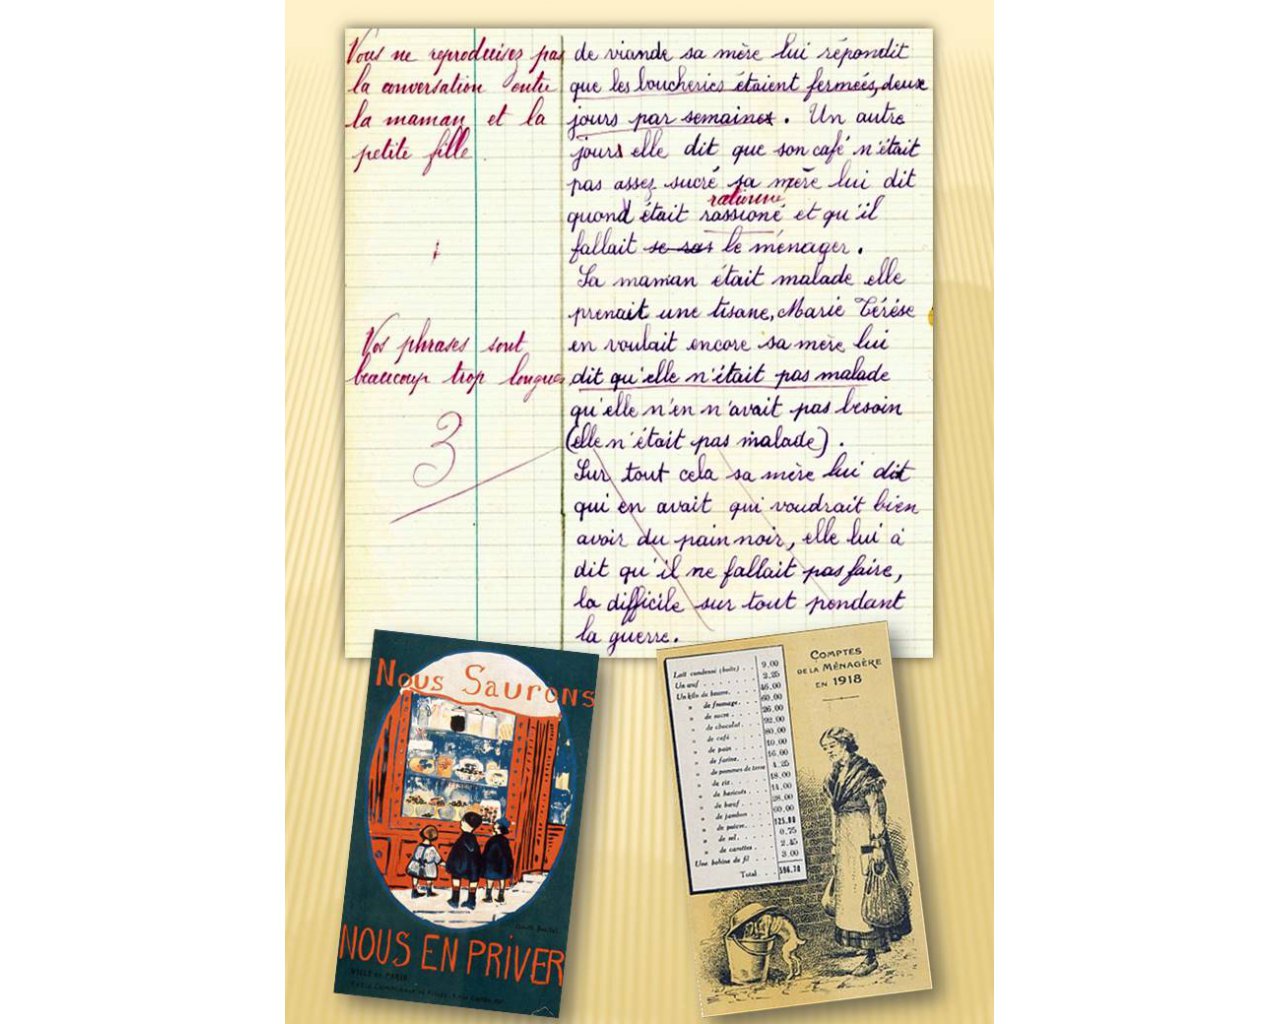 Vous ne reproduisez pas
la conversation entre
la maman et la
petite fille
Vos phrases sont
beaucoup trop longues
3
de viande sa mère lui répondit
que les boucheries étaient fermeés, deux
jours par semaines. Un autre
jours elle dit que son café n'était
pas assez sucré sa mère lui dit
rationné
quond était rassioné et qu'il
fallait le ménager.
Sa maman était malade elle
prenait une tisane, Marie Térése
en voulait encore sa mère lui
dit qu'elle n'était pas malade
qu'elle n'en n'avait pas besoin
(elle n'était pas malade).
Sur tout cela sa mère lui dit
qui en avait qui voudrait bien
avoir du pain noir, elle lui à
dit qu'il ne fallait pas faire,
la difficile sur tout pendant
la guerre.
Nous Saurons
NOUS EN PRIVER
COMPTES
DE LA MÉNAGÈRE
EN 1918
Lait condensé (boîte) . . 9.00
Un œuf . . . 2.25
Un kilo de beurre. . . 46.00
" de fromage. . . 60.00
" de sucre . . . 26.00
" de chocolat. . . 92.00
" de café . . . 80.00
" de pain . . . 10.00
" de farine. . . 16.00
" de pommes de terre 4.25
" de riz . . . 18.00
" de haricots. . . 14.00
" de bœuf . . . 28.00
" de jambon . . . 60.00
" de poivre. . . 125.00
" de sel . . . 0.75
" de carottes . . . 2.45
Une bobine de fil . . . 3.00
Total . . 596.70